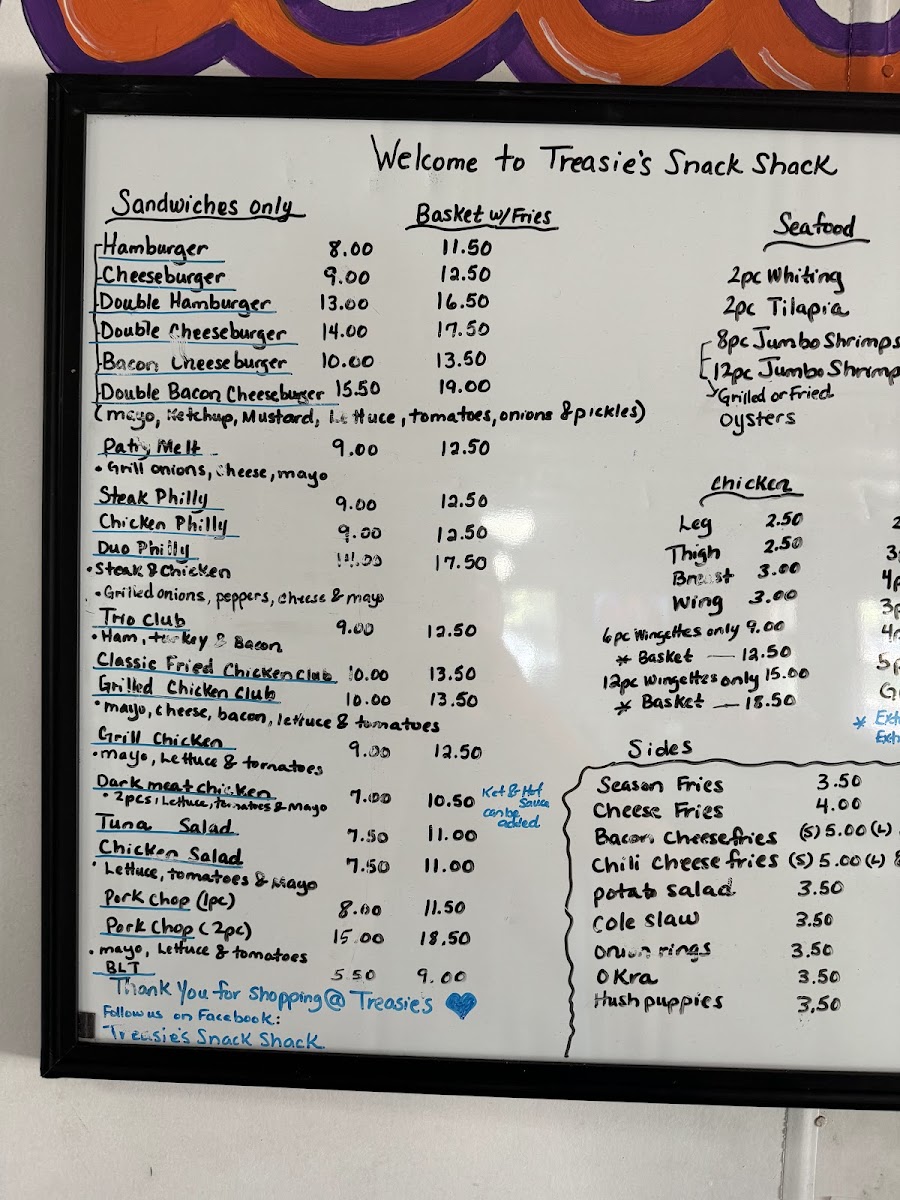 Welcome to Treasie's Snack Shack
Sandwiches only Basket w/Fries
Hamburger 8.00 11.50
Cheeseburger 9.00 12.50
Double Hamburger 13.00 16.50
Double Cheeseburger 14.00 17.50
Bacon Cheeseburger 10.00 13.50
Double Bacon Cheeseburger 15.50 19.00
(mayo, Ketchup, Mustard, Lettuce, tomatoes, onions & pickles)
Patty Melt 9.00 12.50
• Grill onions, cheese, mayo
Steak Philly 9.00 12.50
Chicken Philly 9.00 12.50
Duo Philly 14.00 17.50
• Steak & Chicken
• Grilled onions, peppers, cheese & mayo
Trio Club 9.00 12.50
• Ham, turkey & Bacon
Classic Fried Chicken Club 10.00 13.50
Grilled Chicken Club 10.00 13.50
• mayo, cheese, bacon, lettuce & tomatoes
Grill Chicken 9.00 12.50
• mayo, Lettuce & tomatoes
Dark meat chicken 7.00 10.50
• 2pcs, Lettuce, tomatoes & Mayo
Ket & Hot
Sauce
can be
added
Tuna Salad 7.50 11.00
Chicken Salad 7.50 11.00
• Lettuce, tomatoes & Mayo
Pork Chop (1pc) 8.00 11.50
Pork Chop (2pc) 15.00 18.50
• mayo, Lettuce & tomatoes
BLT 5.50 9.00
Thank You for Shopping @ Treasie's
Follow us on Facebook:
Treasie's Snack Shack
Seafood
2pc Whiting
2pc Tilapia
8pc Jumbo Shrimps
12pc Jumbo Shrimp
Grilled or Fried
Oysters
Chicken
Leg 2.50
Thigh 2.50
Breast 3.00
Wing 3.00
6pc Wingettes only 9.00
* Basket — 12.50
12pc Wingettes only 15.00
* Basket — 18.50
Sides
Season Fries 3.50
Cheese Fries 4.00
Bacon Cheesefries (S) 5.00 (L)
Chili cheese fries (S) 5.00 (L)
potato salad 3.50
Cole Slaw 3.50
Onion rings 3.50
OKra 3.50
Hush puppies 3.50